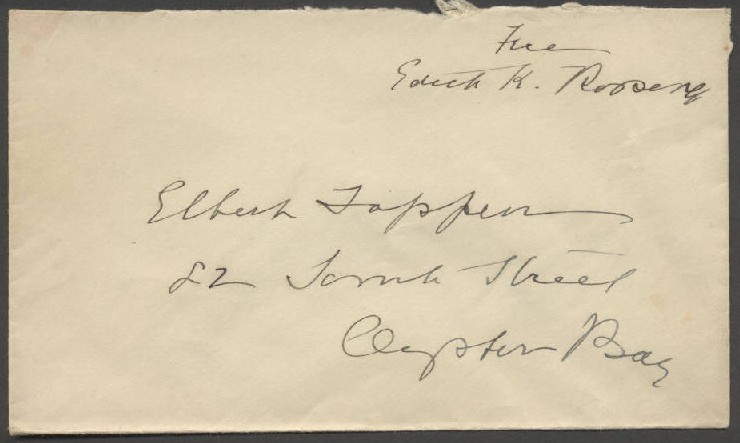 Free
Edith K. Roosevelt
Elbert Tappen
82 South Street
Oyster Bay